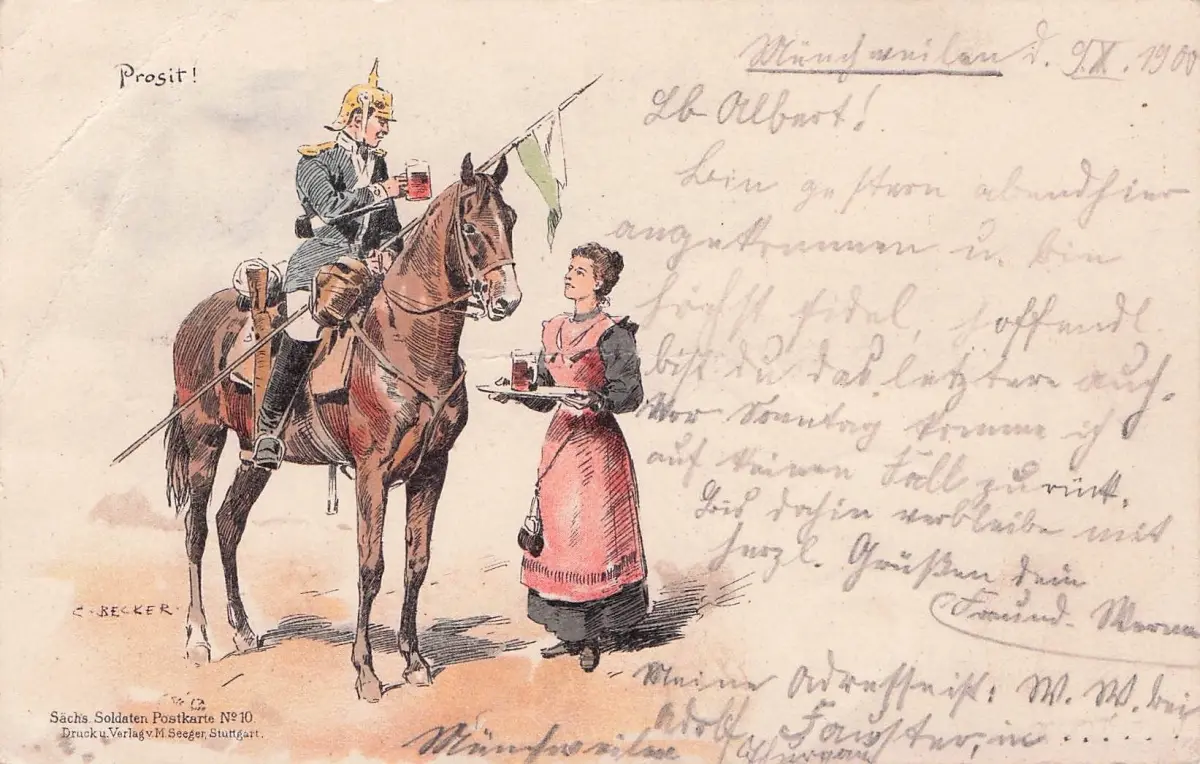 Prosit!
Münchweilen d. 9/X. 1900
Lb Albert!
Bin gestern abend hier
angekommen u. bin
höchst fidel, hoffendl
bist du das letztere auch.
Vor Sonntag komme ich
auf keinen Fall zurück.
Bis dahin verbleibe mit
herzl. Grüßen dein
Freund Werner
Meine Adresse ist: W. W. bei
Adolf in ......
Münchweilen
C. BECKER.
Sächs. Soldaten Postkarte No 10.
Druck u. Verlag v. M. Seeger, Stuttgart.